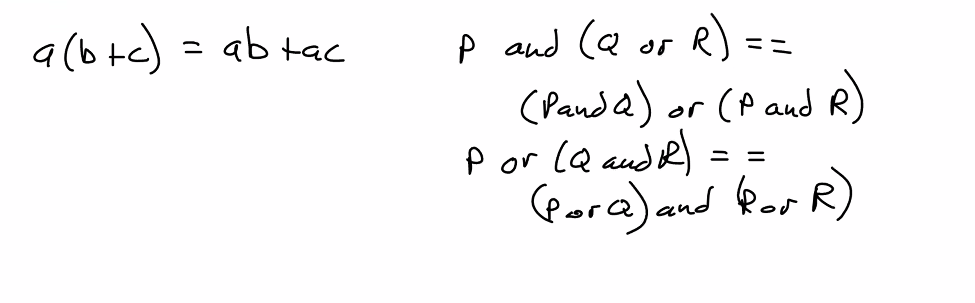 a(b+c) = ab+ac
P and (Q or R) ==
(P and Q) or (P and R)
P or (Q and R) ==
(P or Q) and (P or R)